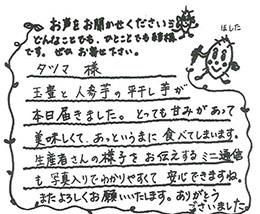 お声をお聞かせください
どんなことでも、ひとことでも結構
です。ぜひ お寄せ下さい。
はした
タツマ 様
玉豊と人参芋の平干し芋が
本日届きました。とっても甘みがあって
美味しくて、あっというまに食べてしまいます。
生産者さんの様子をお伝えするミニ通信
も写真入りでわかりやすくて 安心できますね。
またよろしくお願いいたします。ありがとう
ございました。